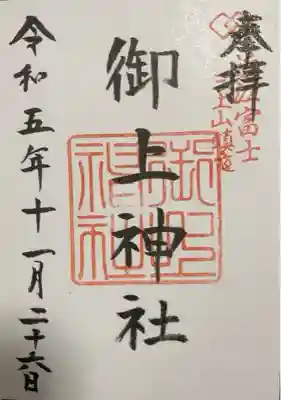 奉拝
近江富士
三上山鎮座
御上神社
令和五年十一月二十六日